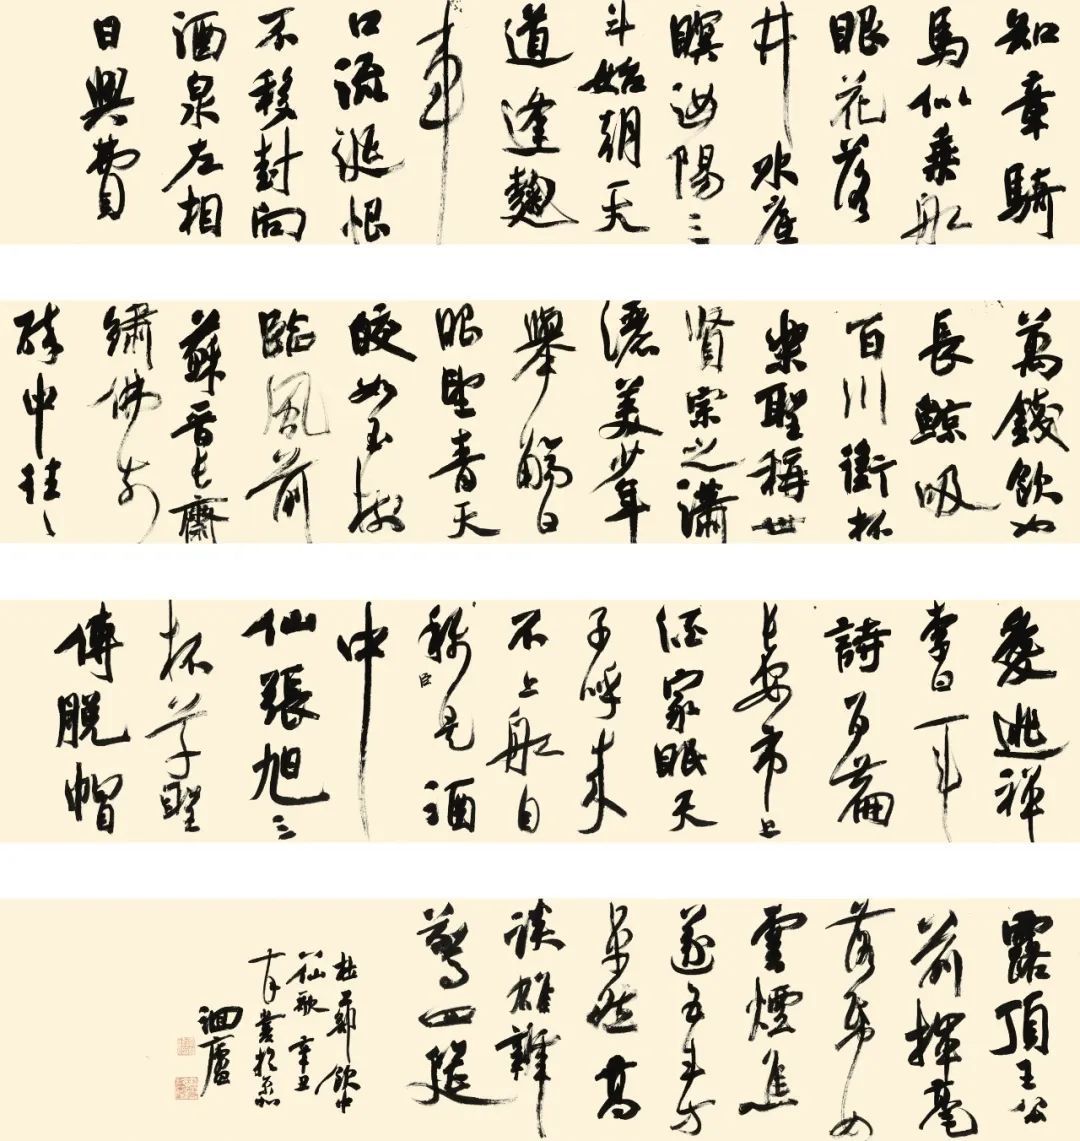 知章騎
馬似乘船
眼花落
井水底
瞑汝陽三
斗始朝天
道逢麴
車
口流涎恨
不移封向
酒泉左相
日興費
萬錢飲如
長鯨吸
百川銜杯
樂聖稱世
賢宗之瀟
灑美少年
舉觴白
眼望青天
皎如玉樹
臨風前
蘇晉長齋
繡佛前
醉中往〻
愛逃禪
李白一斗
詩百篇
長安市上
酒家眠天
子呼來
不上船自
稱臣是酒
中
仙張旭三
杯草聖
傳脫帽
露頂王公
前揮毫
落紙如
雲煙焦
遂五斗方
卓然高
談雄辯
驚四筵
杜工部飲中
八仙歌辛丑
十月書於
廬